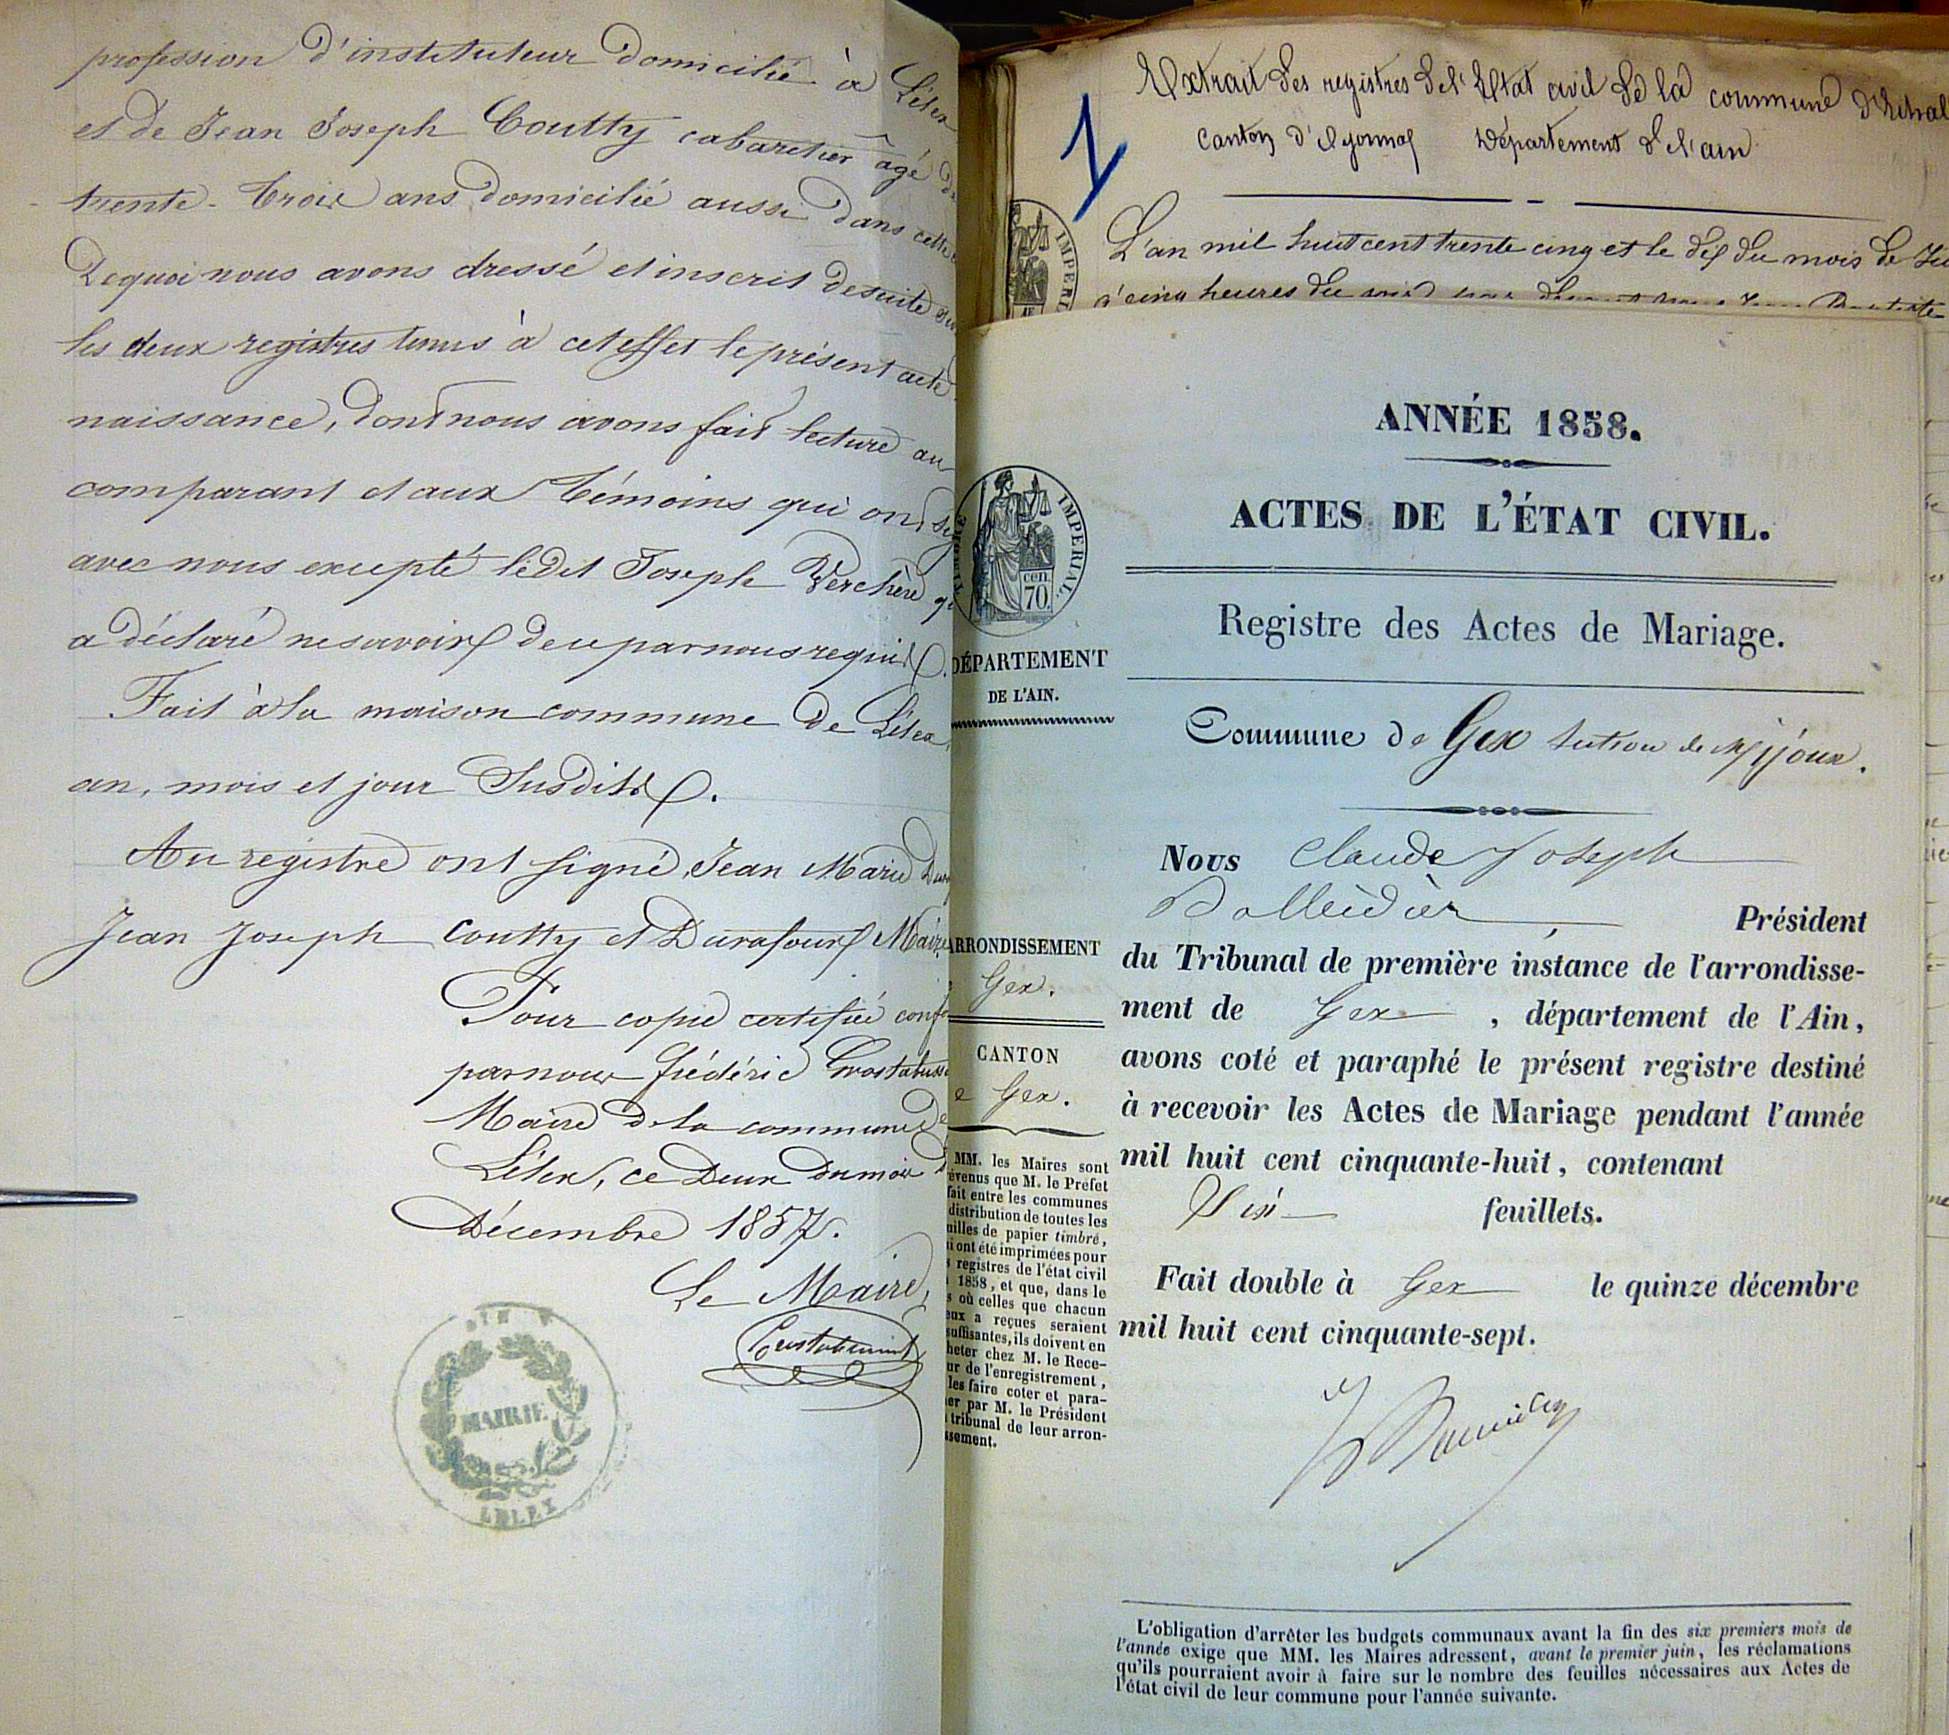 profession d'instituteur domicilié à Lélex
et de Jean Joseph Coutty cabaretier âgé de
trente-trois ans domicilié aussi dans cette
Dequoi nous avons dressé et inscrit desuite sur
les deux registres tenus à cet effet le présent acte
naissance, dont nous avons fait lecture au
comparant et aux témoins qui ont
avec nous excepté ledit Joseph Verchère
a déclaré ne savoir de ce par nous requis.
Fait à la maison commune de Lélex
an, mois et jour susdits.
Au registre ont signé, Jean Marie
Jean Joseph Coutty et Durafour Maire
Pour copie certifiée
par nous Frédéric
Maire de la commune de
Lélex, ce deux du mois
Décembre 1857.
Le Maire,
MAIRIE
LELEX
1
Extrait des registres de l'Etat civil de la commune
canton d'Oyonnax Département de l'ain
L'an mil huit cent trente cinq et le dix du mois de
à cinq heures du soir
IMPERI
ANNÉE 1858.
ACTES DE L'ÉTAT CIVIL.
TIMBRE IMPERIAL.
70 cen.
Registre des Actes de Mariage.
DÉPARTEMENT
DE L'AIN.
Commune de Gex section de Mijoux.
Nous Claude Joseph
Président
du Tribunal de première instance de l'arrondisse-
ment de Gex, département de l'Ain,
avons coté et paraphé le présent registre destiné
à recevoir les Actes de Mariage pendant l'année
mil huit cent cinquante-huit, contenant
Six feuillets.
Fait double à Gex le quinze décembre
mil huit cent cinquante-sept.
ARRONDISSEMENT
Gex.
CANTON
e Gex.
MM. les Maires sont
évenus que M. le Préfet
fait entre les communes
distribution de toutes les
uilles de papier timbré,
i ont été imprimées pour
s registres de l'état civil
1858, et que, dans le
s où celles que chacun
eux a reçues seraient
suffisantes, ils doivent en
heter chez M. le Rece-
ur de l'enregistrement,
les faire coter et para-
er par M. le Président
tribunal de leur arron-
ssement.
L'obligation d'arrêter les budgets communaux avant la fin des six premiers mois de
l'année exige que MM. les Maires adressent, avant le premier juin, les réclamations
qu'ils pourraient avoir à faire sur le nombre des feuilles nécessaires aux Actes de
l'état civil de leur commune pour l'année suivante.